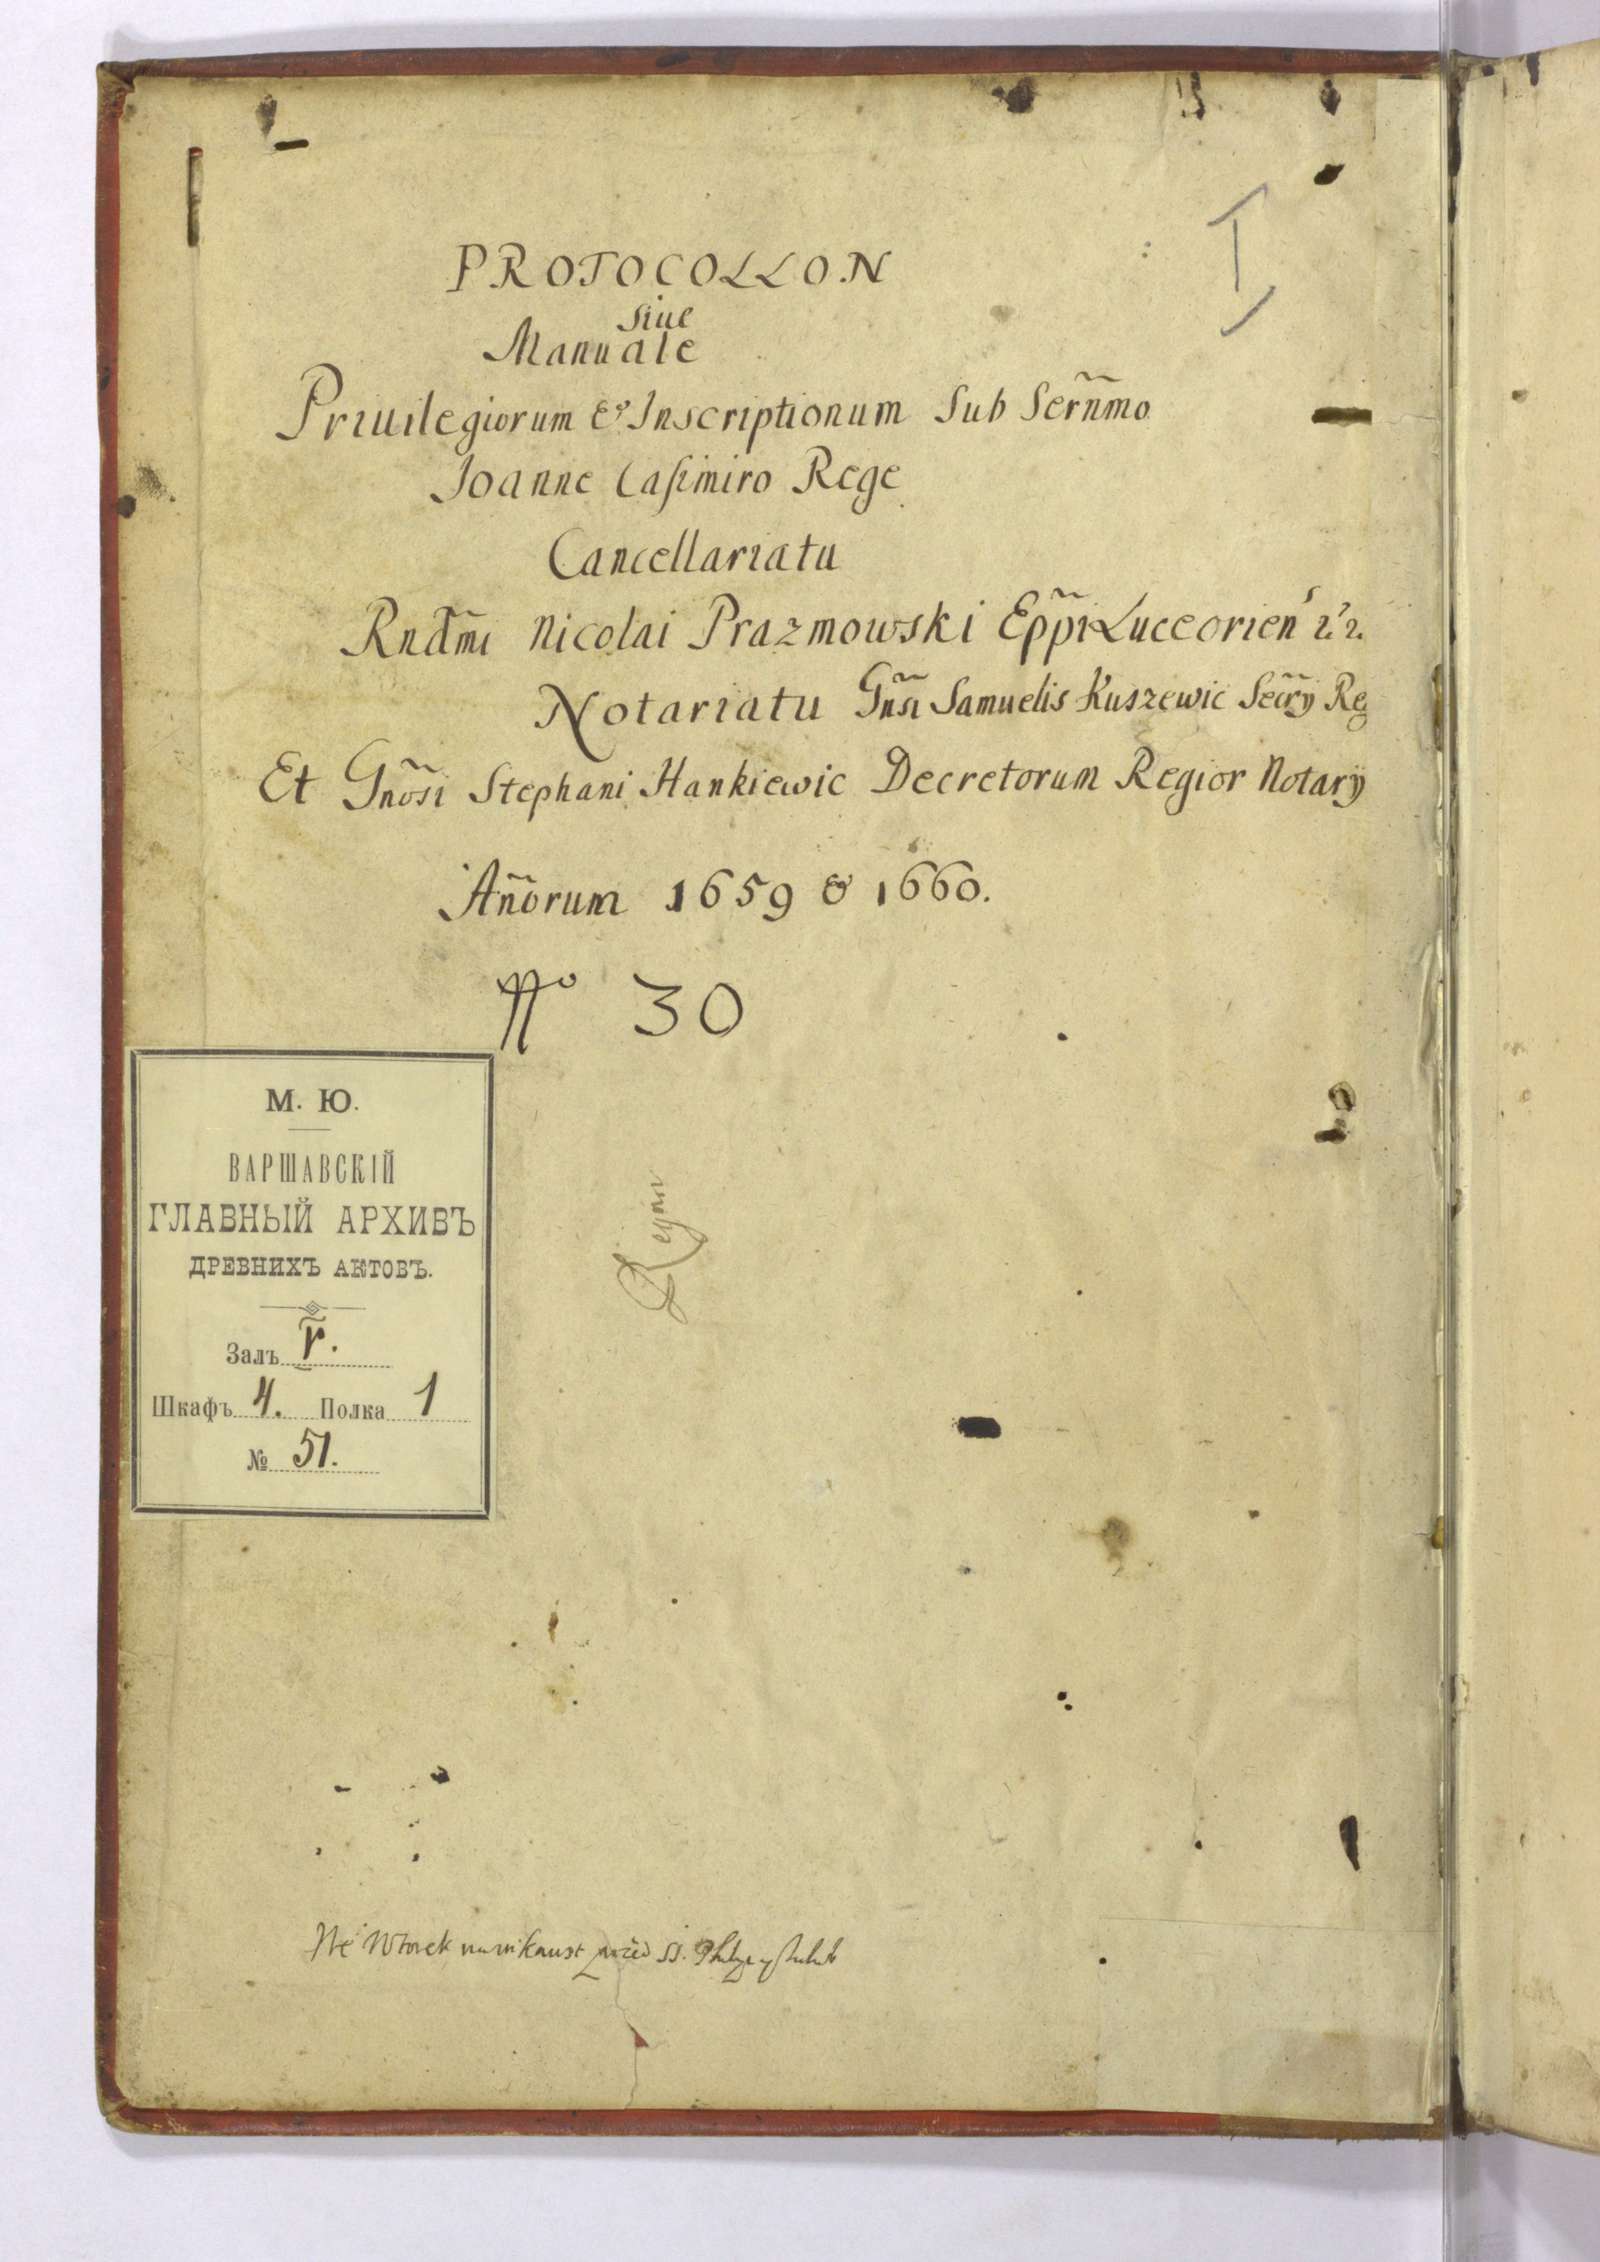 PROTOCOLLON
siue
Manuale
Priuilegiorum & Inscriptionum Sub Serñmo
Joanne Casimiro Rege
Cancellariatu
Rndm̃i Nicolai Prazmowski Epp̃i Luceorien
Notariatu Gñsi Samuelis Kuszewic Secr̃y Reg
Et Gnõsi Stephani Hankiewic Decretorum Regior Notarÿ
Añorum 1659 & 1660.
No 30
М. Ю.
ВАРШАВСКІЙ
ГЛАВНЫЙ АРХИВЪ
ДРЕВНИХЪ АКТОВЪ.
Залъ V.
Шкафъ 4. Полка 1
№ 51.
We Wtorek
I